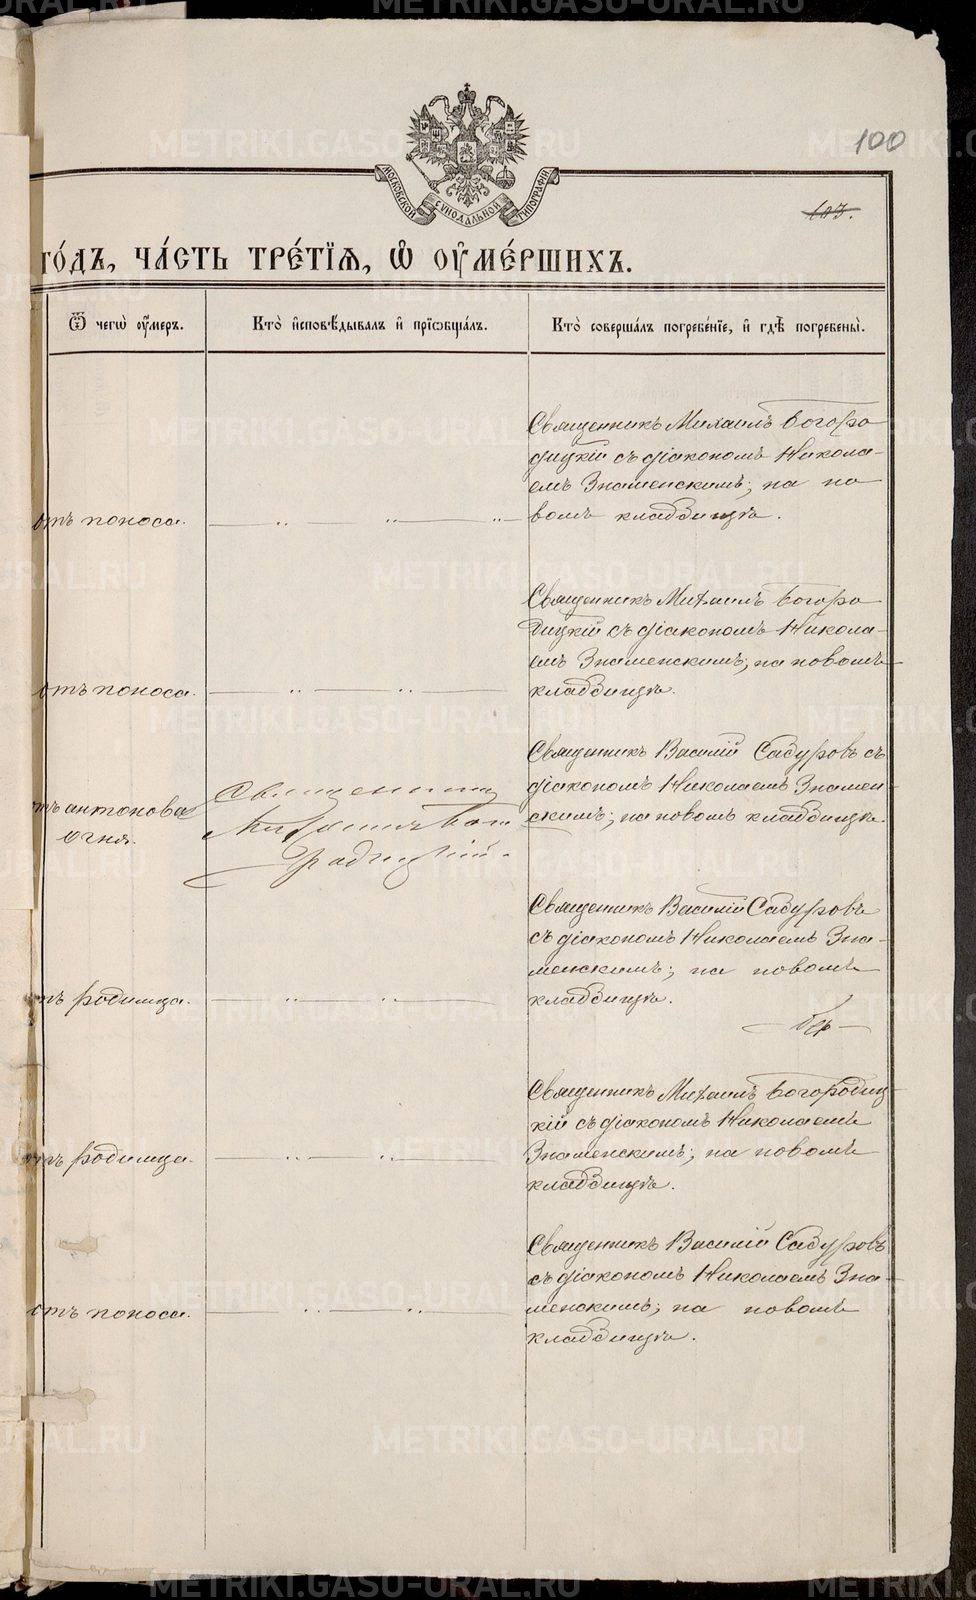 100
103.
МОСКОВСКОЙ СѴНОДАЛЬНОЙ ТИПОГРАФІИ
го́дъ, ча́сть тре́тїѧ, ѡ҆ ᲂу҆ме́ршихъ.
Ѿ чегѡ̀ ᲂу҆́меръ.
Кто̀ и҆сповѣ́дывалъ и҆ прїѡбща́лъ.
Кто̀ соверша́лъ погребе́нїе, и҆ гдѣ̀ погребены̀.
отъ поноса.
Священникъ Михаилъ Богоро
дицкій съ діакономъ Никола-
емъ Знаменскимъ; на но
вомъ кладбищѣ.
отъ поноса.
Священникъ Михаилъ Богоро
дицкій съ діакономъ Никола-
емъ Знаменскимъ; на новомъ
кладбищѣ.
отъ антонова
огня.
Священникъ
Михаилъ Бого
родицкій.
Священникъ Василій Садуровъ съ
діакономъ Николаемъ Знамен-
скимъ; на новомъ кладбищѣ.
отъ родимца.
Священникъ Василій Садуровъ
съ діакономъ Николаемъ Зна-
менскимъ; на новомъ
кладбищѣ.
отъ родимца.
Священникъ Михаилъ Богородиц
кій съ діакономъ Николаемъ
Знаменскимъ; на новомъ
кладбищѣ.
отъ поноса.
Священникъ Василій Садуровъ
съ діакономъ Николаемъ Зна-
менскимъ; на новомъ
кладбищѣ.
METRIKI.GASO-URAL.RU